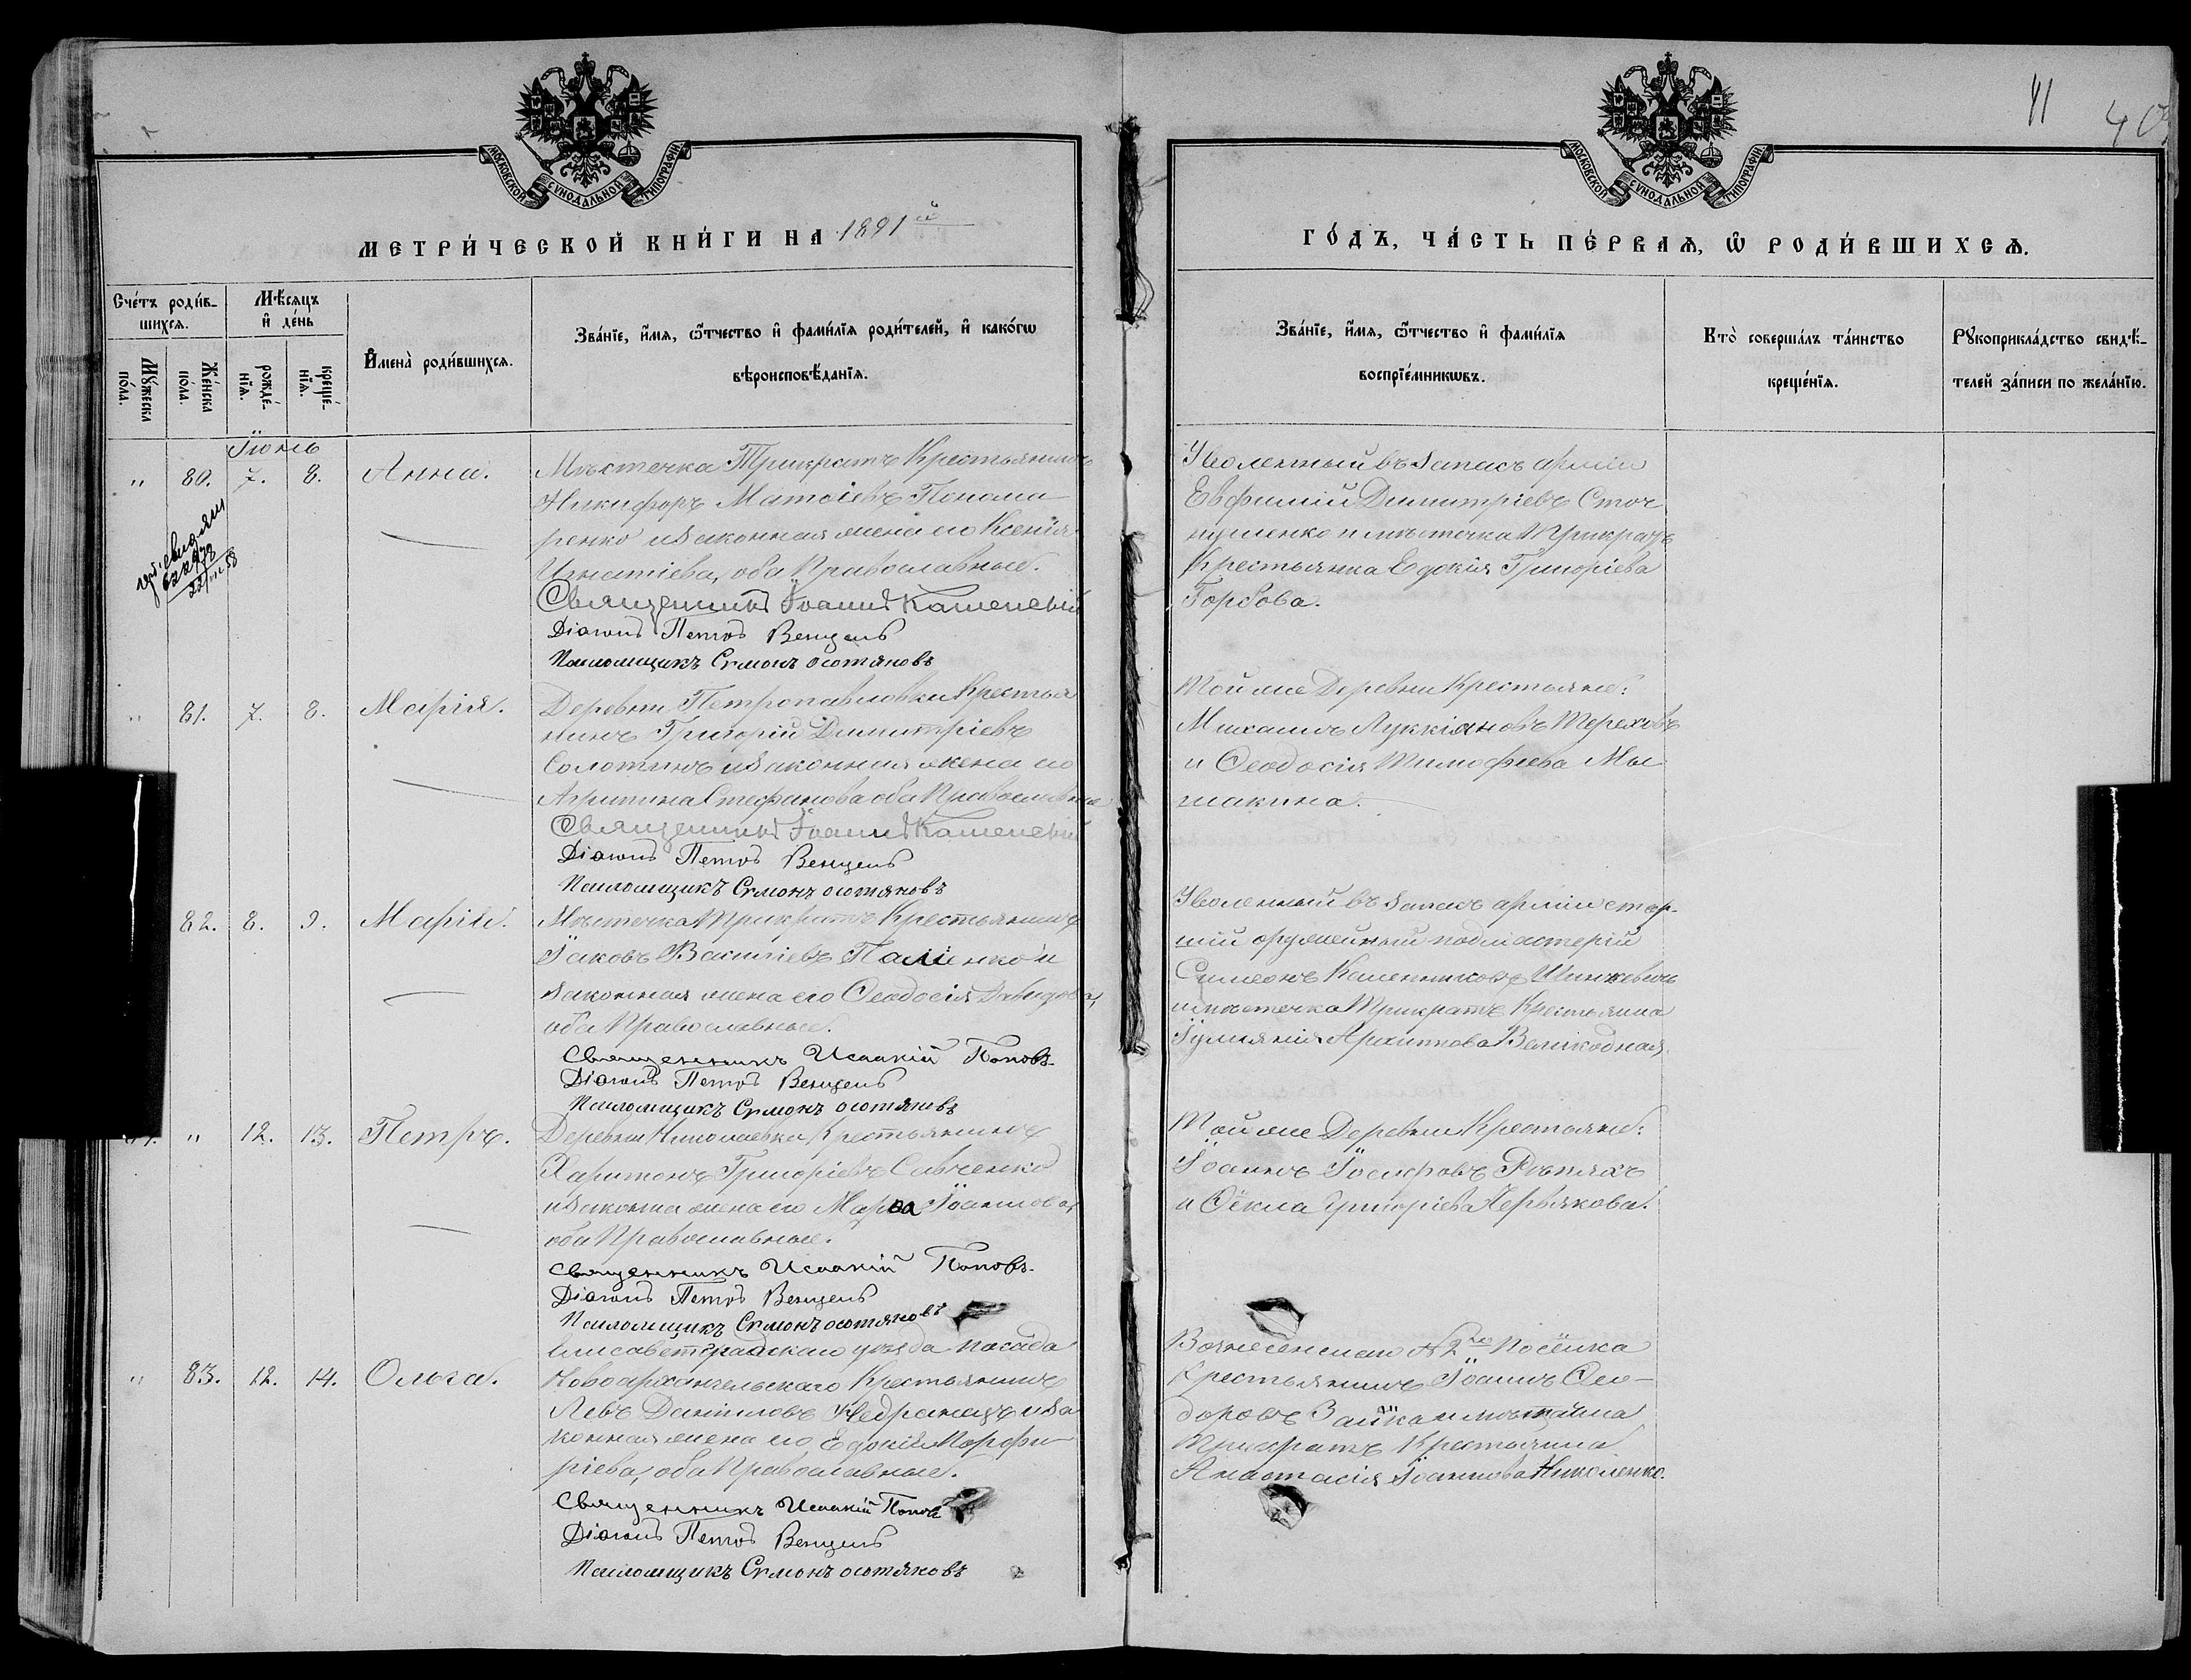 41
40
МОСКОВСКОЙ СѴНОДАЛЬНОЙ ТИПОГРАФІИ
МОСКОВСКОЙ СѴНОДАЛЬНОЙ ТИПОГРАФІИ
МЕТРИ́ЧЕСКОЙ КНИ́ГИ НА 1891й
ГО́ДЪ, ЧА́СТЬ ПЕ́РВАЯ, Ѡ РОДИ́ВШИХСЯ.
Счетъ роди́в-
шихся.
Мѣсяцъ
и де́нь
Мужеска
по́ла.
Же́нска
по́ла.
рожде́-
нія.
креще́-
нія.
Имена̀ роди́вшихся.
Зва́ніе, и́мя, ѻ́тчество и фами́лія роди́телей, и како́гѡ
вѣроисповѣ́данія.
Зва́ніе, и́мя, ѻ́тчество и фами́лія
воспріе́мникѡвъ.
Кто̀ соверша́лъ та́инство
креще́нія.
Рукоприкла́дство свидѣ́-
телей за́писи по жела́нію.
Іюнь
" 80. 7. 8. Анна. Мѣстечка Трикратъ Крестьянинъ
Никифоръ Матѳіевъ Понома
ренко и законная жена его Ксенія
Игнатіева, оба Православные.
Священникъ Іоаннъ Каменскій
Діаконъ Петръ Венцель
Псаломщикъ Сѵмонъ Осотяновъ
Уволенный въ запасъ арміи
Евфимій Димитріевъ Стог
нушенко и мѣстечка Трикратъ
Крестьянка Евдокія Григоріева
Горбова.
" 81. 7. 8. Марія. Деревни Петропавловки Крестья
нинъ Григорій Димитріевъ
Солотинъ и законная жена его
Агрипина Стефанова оба Православные
Священникъ Іоаннъ Каменскій
Діаконъ Петръ Венцель
Псаломщикъ Сѵмонъ Осотяновъ
Той же Деревни Крестьяне:
Михаилъ Луккіяновъ Тереховъ
и Ѳеодосія Тимофеева Мы
шакина.
82. 8. 9. Марія. Мѣстечка Трикратъ Крестьянинъ
Іаковъ Василіевъ Паліенко и
законная жена его Ѳеодосія Давидова,
оба Православные.
Священникъ Исаакій Поповъ
Діаконъ Петръ Венцель
Псаломщикъ Сѵмонъ Осотяновъ
Уволенный въ запасъ арміи стар-
шій оружейный подмастерій
Симеонъ
и мѣстечка Трикратъ Крестьянка
Іуліянія Архипова Великодная.
" 12. 13. Петръ. Деревни Николаевки Крестьянинъ
Харитонъ Григоріевъ Савченко
и законна жена его Марѳа Іоаннова,
оба Православные.
Священникъ Исаакій Поповъ
Діаконъ Петръ Венцель
Псаломщикъ Сѵмонъ Осотяновъ
Той же Деревни Крестьяне:
Іоаннъ Іосифовъ Рѣпяхъ
и Ѳекла Григоріева Червякова.
" 83. 12. 14. Ольга. Елисаветградскаго уѣзда посада
Новоархангельскаго Крестьянинъ
Левъ Даниловъ и за
конная жена его Евдокія Порфи
ріева, оба Православные.
Священникъ Исаакій Поповъ
Діаконъ Петръ Венцель
Псаломщикъ Сѵмонъ Осотяновъ
Вознесенскаго №2го Посёлка
Крестьянинъ Іоаннъ Ѳео-
доровъ Заика и мѣстечка
Трикратъ Крестьянка
Анастасія Іоаннова Николенко.